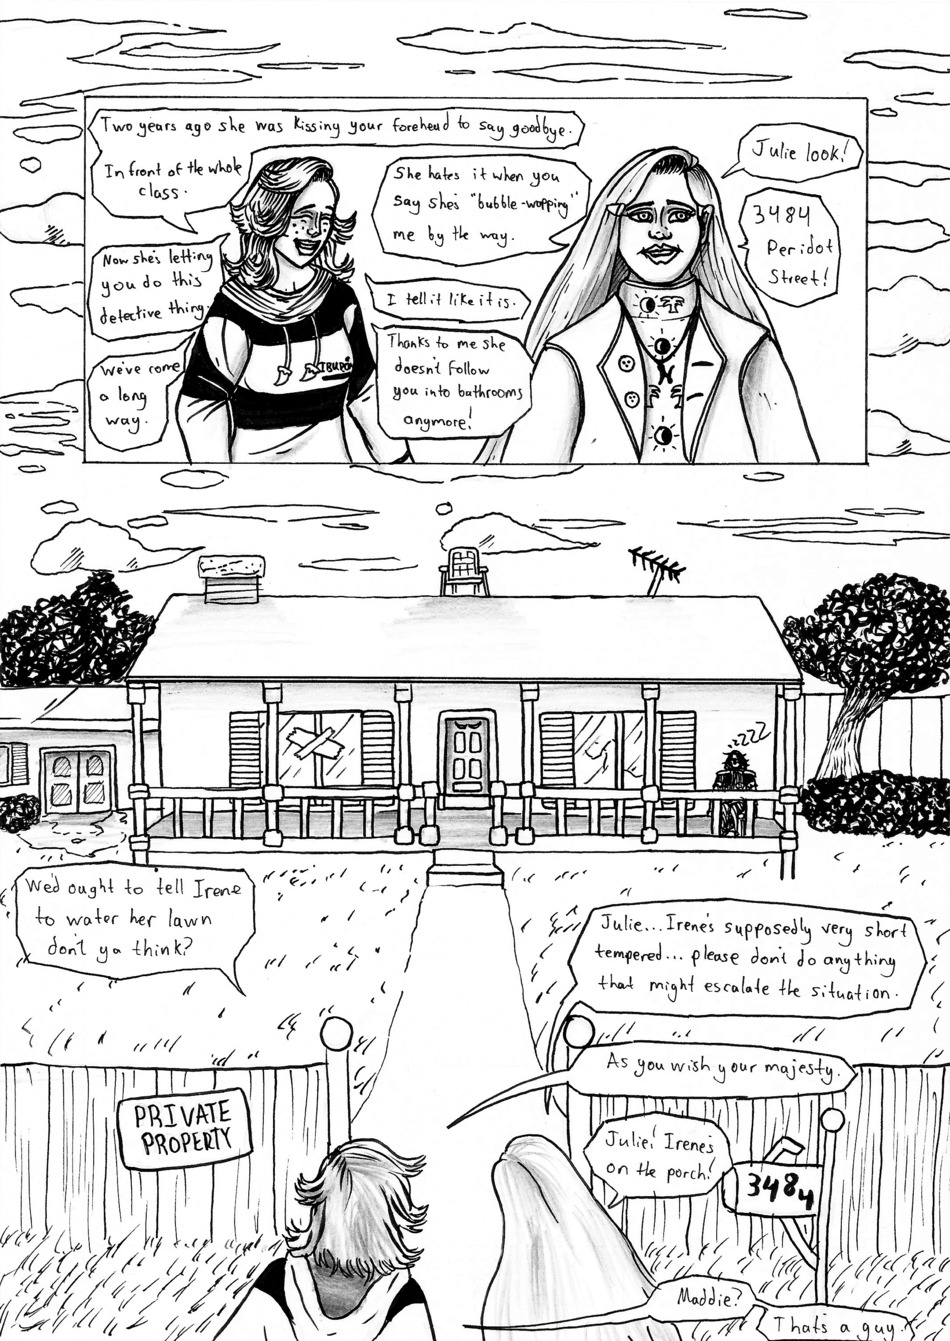 Two years ago she was kissing your forehead to say goodbye.
In front of the whole
class.
She hates it when you
say she's "bubble-wrapping"
me by the way.
Julie look!
3484
Peridot
Street!
Now she's letting
you do this
detective thing.
I tell it like it is.
We've come
a long
way.
Thanks to me she
doesn't follow
you into bathrooms
anymore!
IBUPRO
zzzz
We'd ought to tell Irene
to water her lawn
don't ya think?
Julie... Irene's supposedly very short
tempered... please don't do anything
that might escalate the situation.
As you wish your majesty.
PRIVATE
PROPERTY
Julie! Irene's
on the porch!
3484
Maddie?
That's a guy.